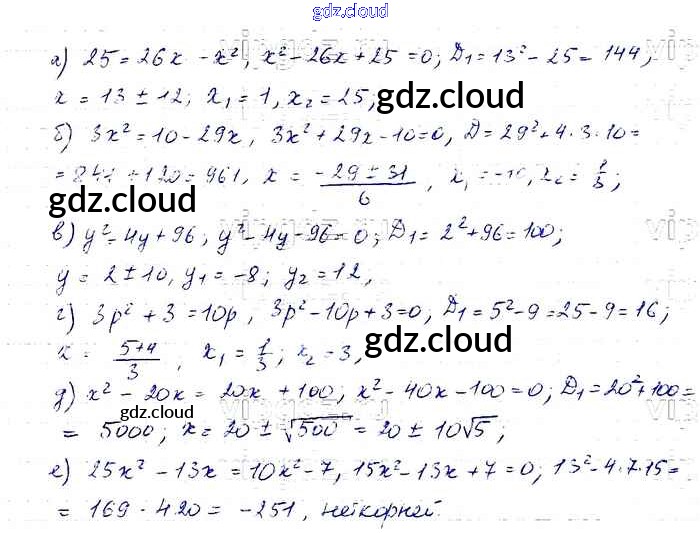 gdz.cloud
а) 25 = 26x - x², x² - 26x + 25 = 0; D₁ = 13² - 25 = 144;
x = 13 ± 12; x₁ = 1, x₂ = 25;
gdz.cloud
б) 3x² = 10 - 29x, 3x² + 29x - 10 = 0, D = 29² + 4·3·10 =
= 841 + 120 = 961, x = (-29 ± 31)/6, x₁ = -10, x₂ = 1/3;
gdz.cloud
в) y² = 4y + 96; y² - 4y - 96 = 0; D₁ = 2² + 96 = 100;
y = 2 ± 10, y₁ = -8; y₂ = 12,
г) 3p² + 3 = 10p, 3p² - 10p + 3 = 0; D₁ = 5² - 9 = 25 - 9 = 16;
x = (5+4)/3, x₁ = 1/3; x₂ = 3,
gdz.cloud
д) x² - 20x = 20x + 100; x² - 40x - 100 = 0; D₁ = 20² + 100 =
gdz.cloud
= 5000; x = 20 ± √500 = 20 ± 10√5;
е) 25x² - 13x = 10x² - 7, 15x² - 13x + 7 = 0; 13² - 4·7·15 =
= 169 - 420 = -251, нет корней.
gdz.cloud